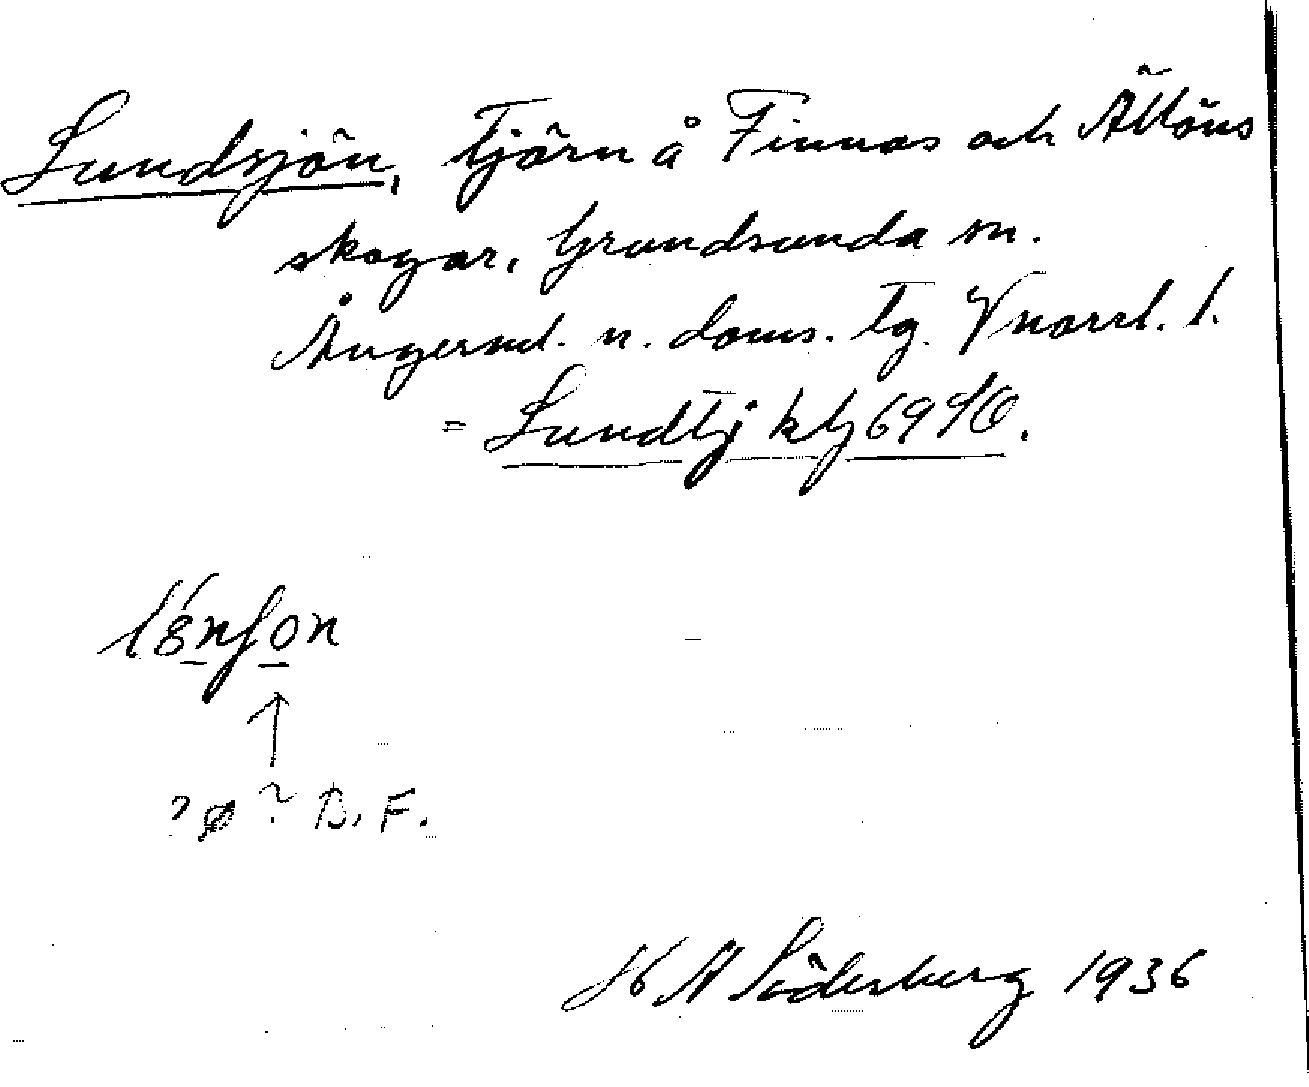 Lundsjön, Tjärn å Finnas och Ällöns
skogar, Grundsunda sn.
Ångerml. n. doms. Tg. Vnorrl. l.
= Lundtj kbl 69 SO.
? ø ? B. F.
H A Söderberg 1936